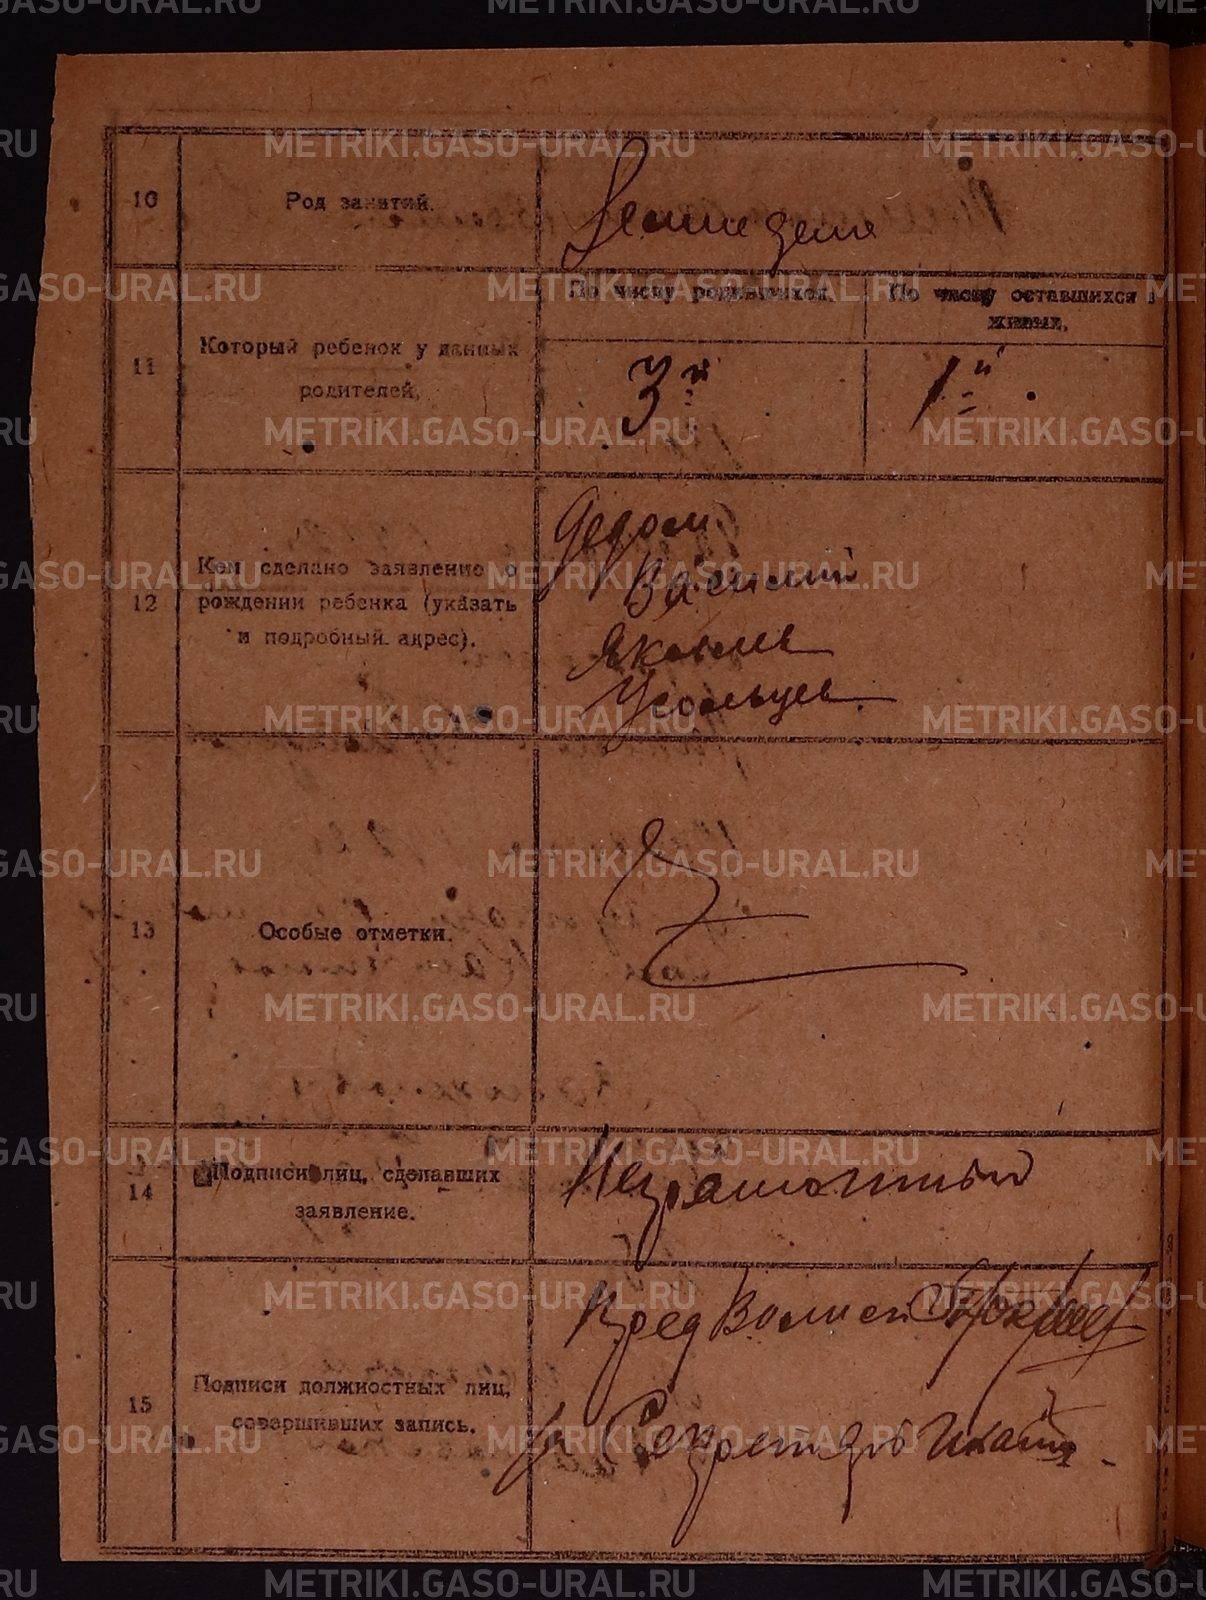 METRIKI.GASO-URAL.RU
10
Род занятий.
Земледелие
11
Который ребенок у данных
родителей.
По числу родившихся.
3й
По числу оставшихся в
живых.
1й.
12
Кем сделано заявление о
рождении ребенка (указать
и подробный адрес).
Дедом
Василий
Яковлев
Усольцев.
13
Особые отметки.
14
Подписи лиц, сделавших
заявление.
Неграмотный
15
Подписи должностных лиц,
совершивших запись.
Пред
Секретарь